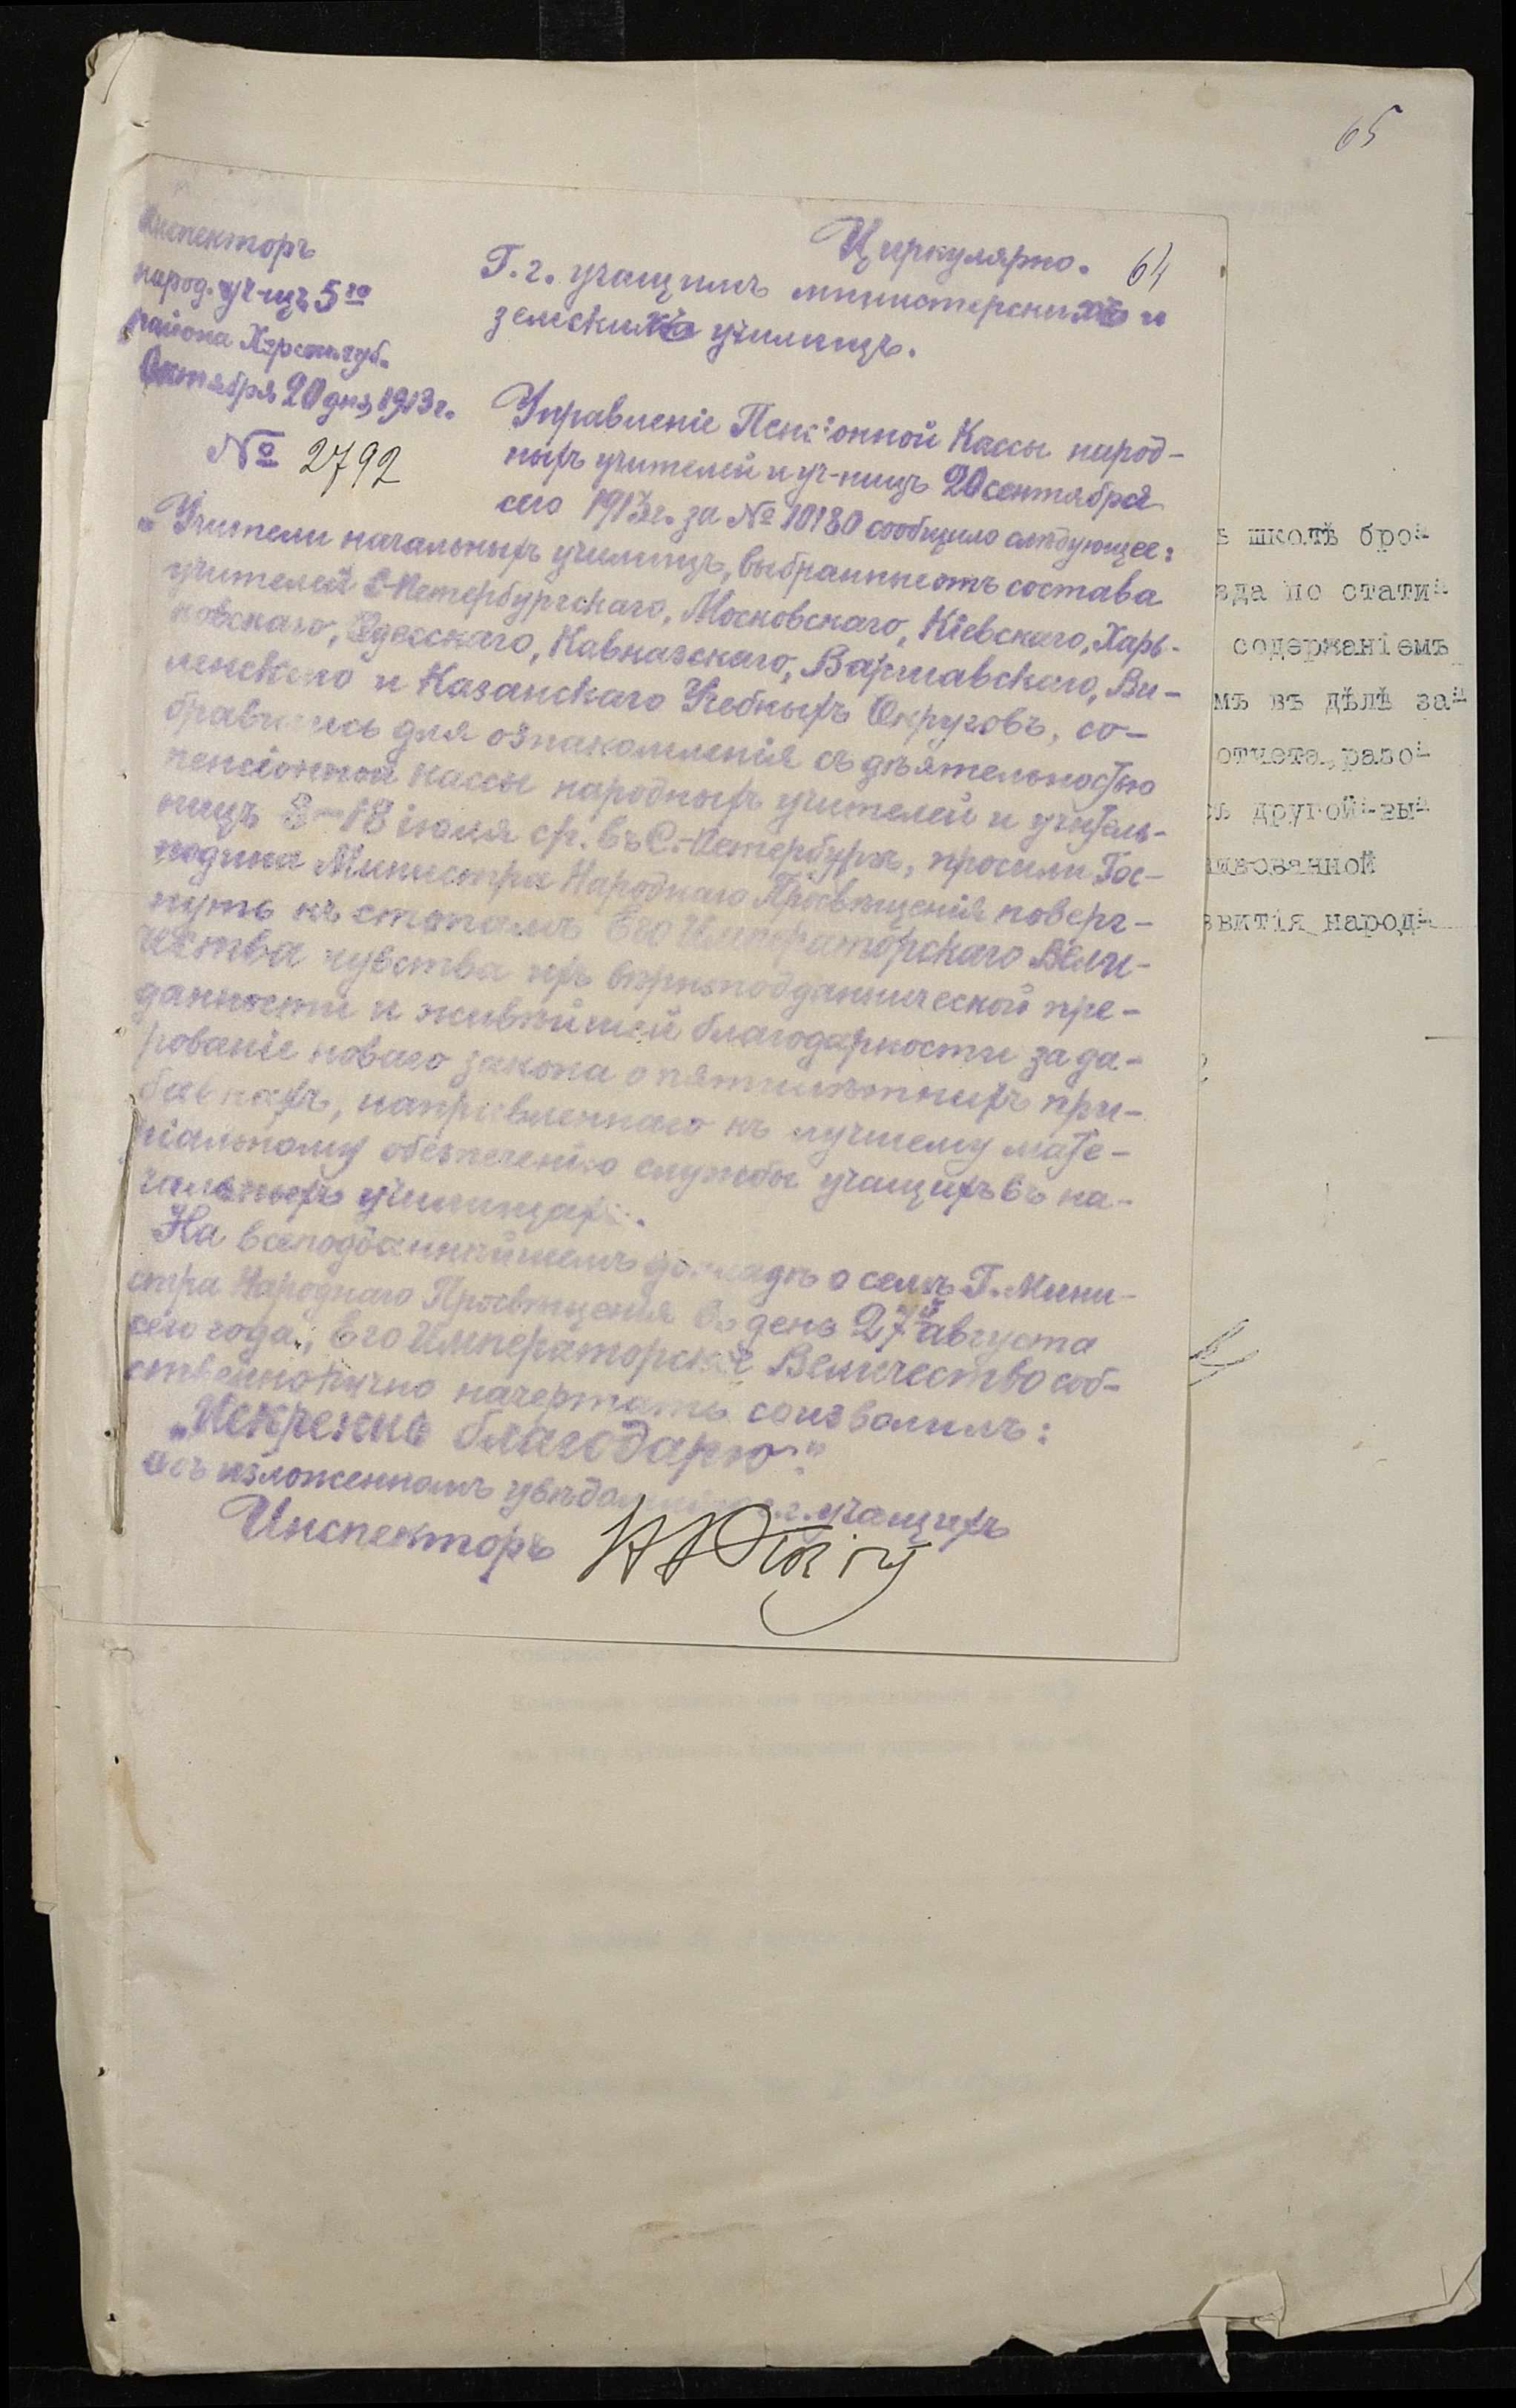 65
Инспекторъ
народ. уч-щъ 5го
района Херсон. губ.
Октября 20 дня 1913 г.
№ 2792
Циркулярно. 64
Г.г. учащимъ министерскихъ и
земскихъ училищъ.
Управленіе Пенсіонной Кассы народ-
ныхъ учителей и уч-ницъ 20 сентября
сего 1913 г. за № 10180 сообщило слѣдующее:
„Учители начальныхъ училищъ, выбранные отъ состава
учителей С-Петербургскаго, Московскаго, Кіевскаго, Харь-
ковскаго, Одесскаго, Кавказскаго, Варшавскаго, Ви-
ленскаго и Казанскаго Учебныхъ Округовъ, со-
бравшись для ознакомленія съ дѣятельностью
пенсіонной кассы народныхъ учителей и учитель-
ницъ 8-18 іюля с/г. въ С.-Петербургѣ, просили Гос-
подина Министра Народнаго Просвѣщенія поверг-
нуть къ стопамъ Его Императорскаго Вели-
чества чувства ихъ вѣрноподданнической пре-
данности и живѣйшей благодарности за да-
рованіе новаго закона о пятилѣтнихъ при-
бавкахъ, направленнаго къ лучшему мате-
ріальному обезпеченію службы учащихъ въ на-
чальныхъ училищахъ.
На всеподданнѣйшемъ докладѣ о семъ Г. Мини-
стра Народнаго Просвѣщенія въ день 27й августа
сего года, Его Императорское Величество соб-
ственноручно начертать соизволилъ:
„Искренно благодарю“.
Объ изложенномъ увѣдомляю г.г. учащихъ
Инспекторъ
школѣ бро-
зда по стати-
содержаніемъ
мъ въ дѣлѣ за-
отчета, разо-
другой-вы-
звитія народ-